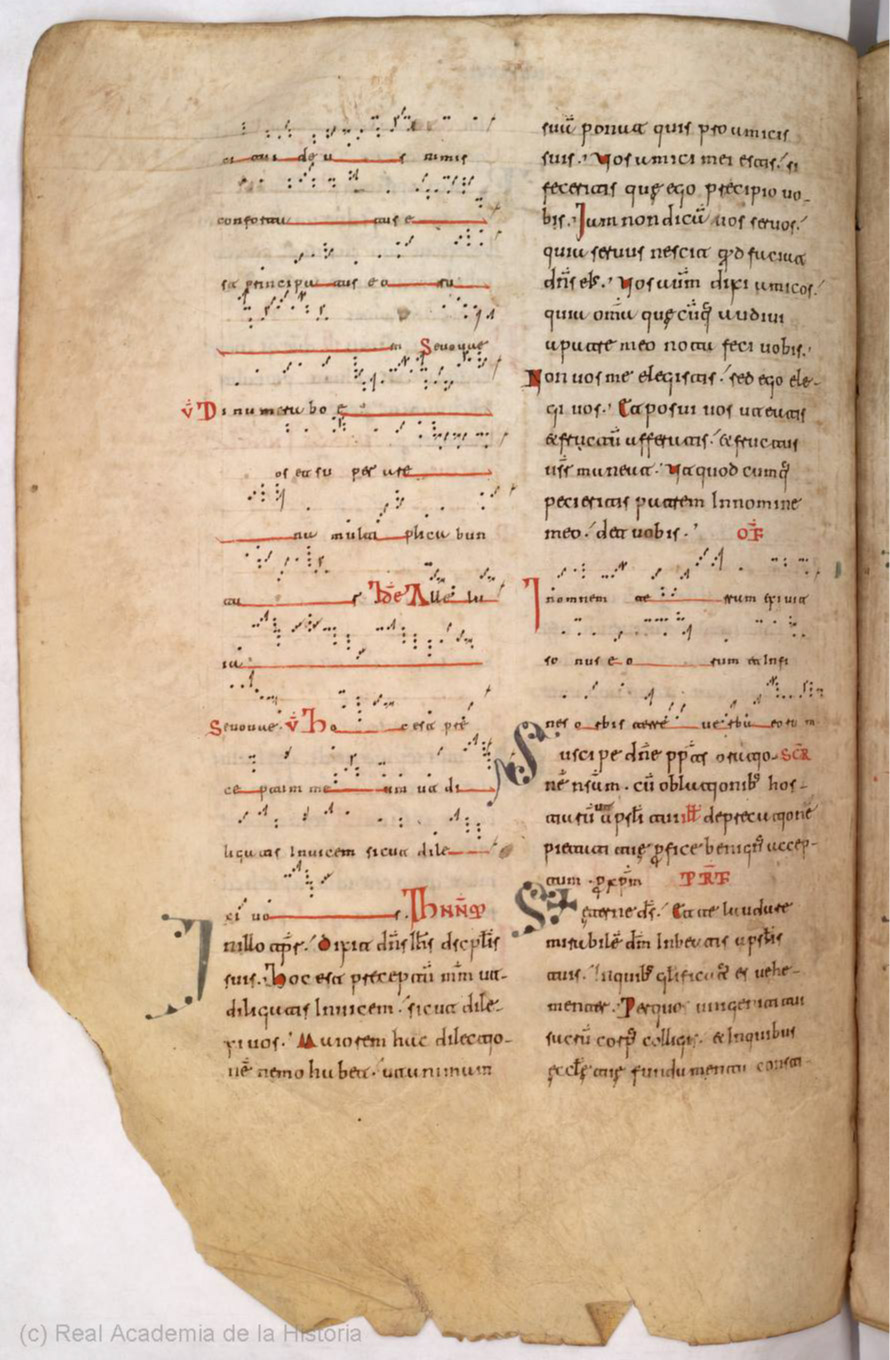 ci tui de u s nimis
confortatus e
st principatus eoru
m Seuouae
V̄ Dinumerabo e
os et super are
na multiplicabun
tu r Alle lu
ia
Seuouae V̄ Hoc est pre
ceptum meum ut di
ligatis Inuicem sicut dile
xi uos.
In illo tp̄re. Dixit dn̄s ihs discplīs
suis. Hoc est preceptū mm̄ ut
diligatis Inuicem. sicut dile-
xi uos. Maiorem hac dilectio-
nē nemo habet. ut animam
suā ponat quis pro amicis
suis. Vos amici mei estis. si
feceritis quę ego precipio uo-
bis. Iam non dicā uos seruos.
quia seruus nescit qd faciat
dn̄s eIs. Vos autm̄ dixi amicos.
quia omīa quęcūq audiui
a patre meo nota feci uobis.
Non uos me elegistis. sed ego ele-
gi uos. Et posui uos ut eatis
& fructū afferatis. & fructus
ur̄s maneat. Vt quodcumq
petieritis patrem In nomine
meo. det uobis. OF̄
In omnem terrum exiuit
sonus eorum et In fi
nes orbis terre uerba eorum
Suscipe dn̄e pp̄ts oratio- SCR
nē nr̄am. cū oblationib hos-
tiarū apsl̄i tui ill̄ deprecatione
pietati tuę pfice benigń accep-
tum. p xpm̄ PRF
Sęterne ds̄. Et te laudare
mirabilē dm̄ In beatis apsl̄is
tuis. In quib glificat es uehe-
menter. Per quos unigeniti tui
sacrū corp colligis. & In quibus
ęccl̄ę tuę fundamenta consti-
(c) Real Academia de la Historia